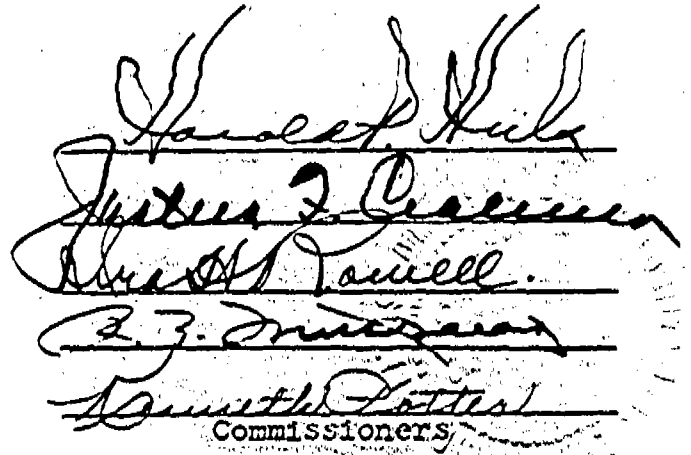 Harold P. Huls
Justus F. Craemer
Ira H. Rowell.
Kenneth Potter
Commissioners